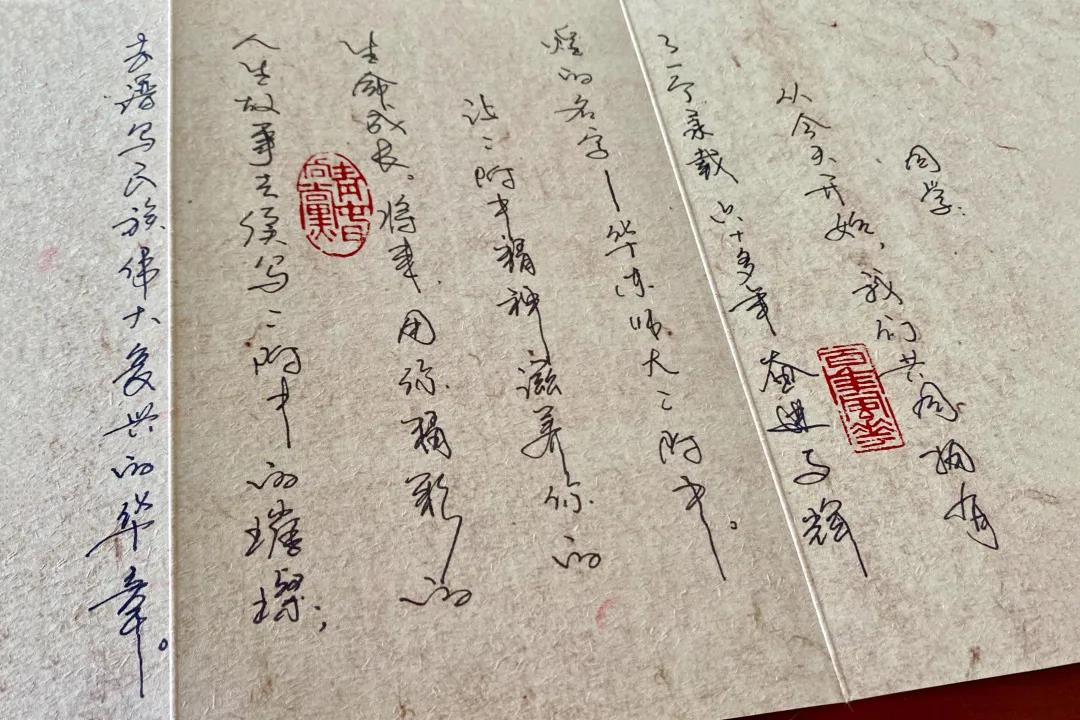 同学:
从今天开始，我们共同拥有
了一个承载六十多年奋进与辉
煌的名字—华东师大二附中。
让二附中精神滋养你的
生命成长。将来，用你精彩的
人生故事去续写二附中的璀璨；
去谱写民族伟大复兴的华章。
青春向党